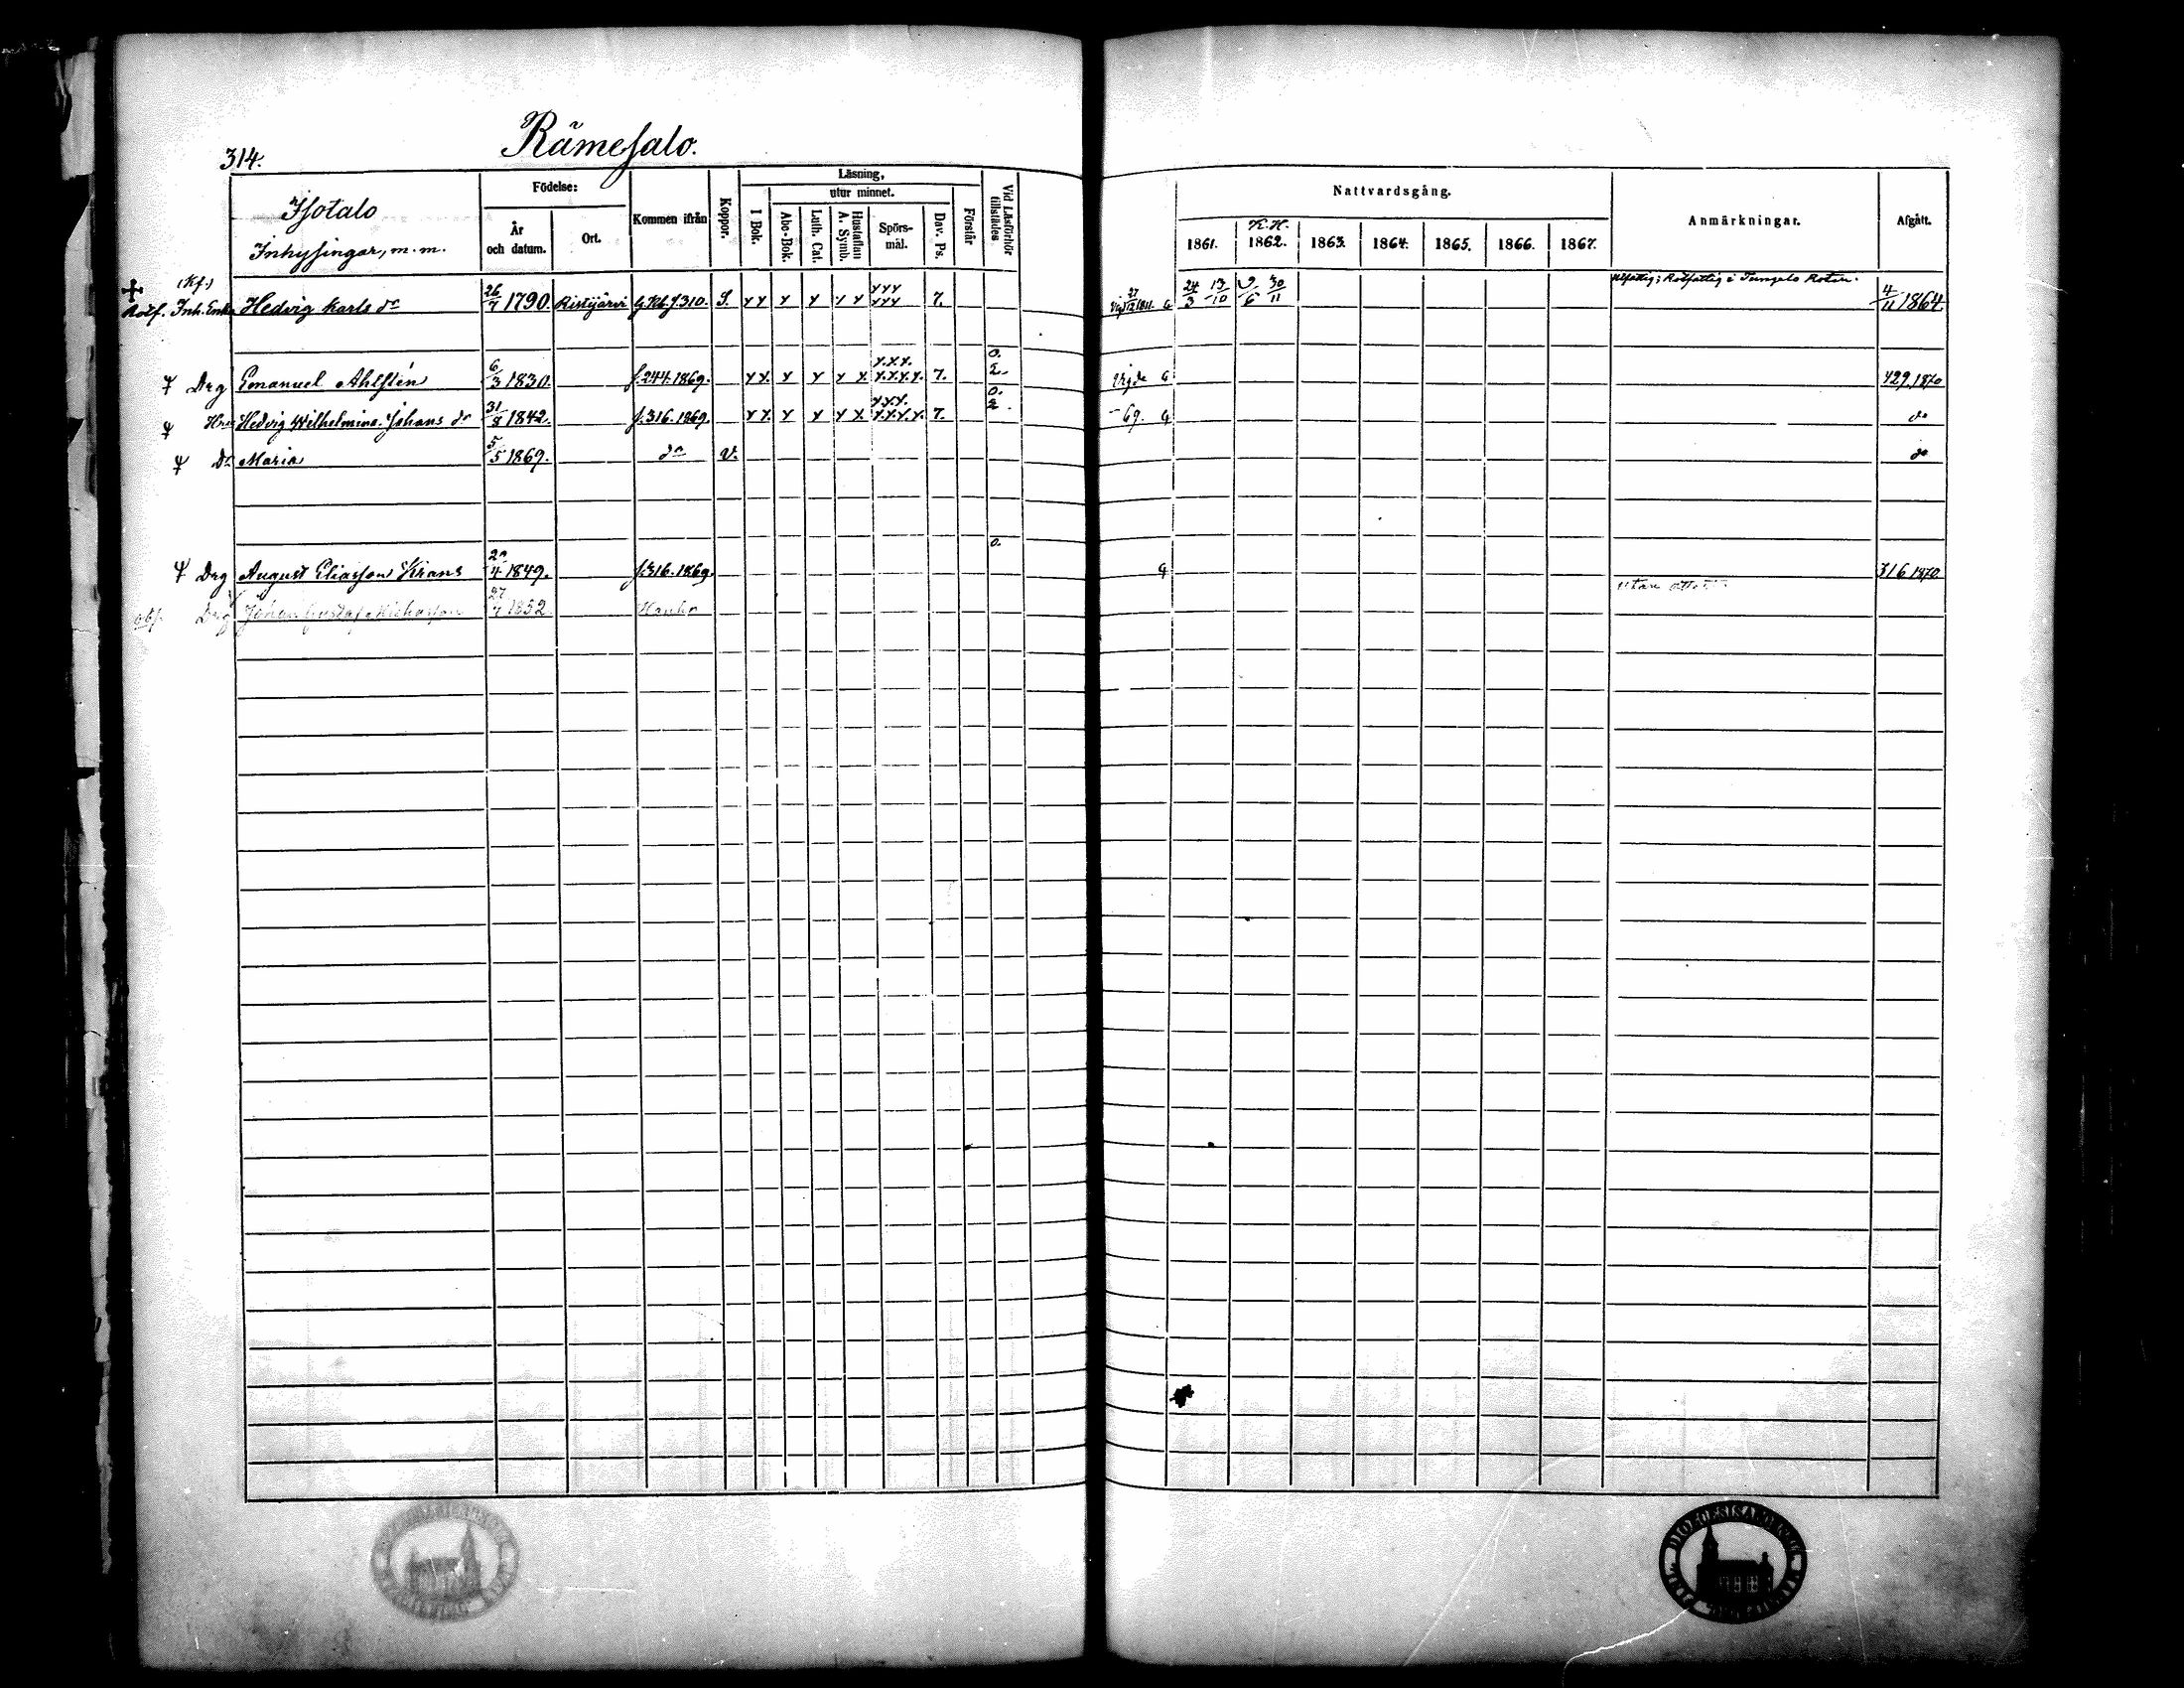 314.
Rämesalo.
Isotalo
Inhysingar, m. m.
Födelse:
År och datum.
Ort.
Kommen ifrån
Koppor.
Läsning,
I Bok.
utur minnet.
Abc-Bok.
Luth. Cat.
Hustaflan A. Symb.
Spörsmål.
Dav. Ps.
Förstår
Vid Läsförhör tillstädes
Nattvardsgång.
K. H.
1861. 1862. 1863. 1864. 1865. 1866. 1867.
Anmärkningar.
Afgått.
(Kf.)
Rotf. Inh. Enka Hedvig Karls dr 26/7 1790. Ristijärvi G.Kb.f.310. S. x x x x x x x x x x x x 7. G 24/3 13/10 9/6 30/11 Rotfattig i Tungelo Roten. 4/11 1864.
Drg Emanuel Ahlstén 6/3 1830. f.244.1869. x x. x x x x x.x.x. x.x.x.x. 7. 0. 2. G 429.1870
Hru Hedvig Wilhelmina Johans dr 31/8 1842. f.316.1869. x x x x x x. x.x.x. x.x.x.x. 7. 0. 2. -69. G do
dr Maria 5/5 1869. do V. do
Drg August Eliasson Krans 20/4 1849. f.316.1869. 0. G 316 1870
Drg Johan Gustaf 27/7 1852 Hauho utan